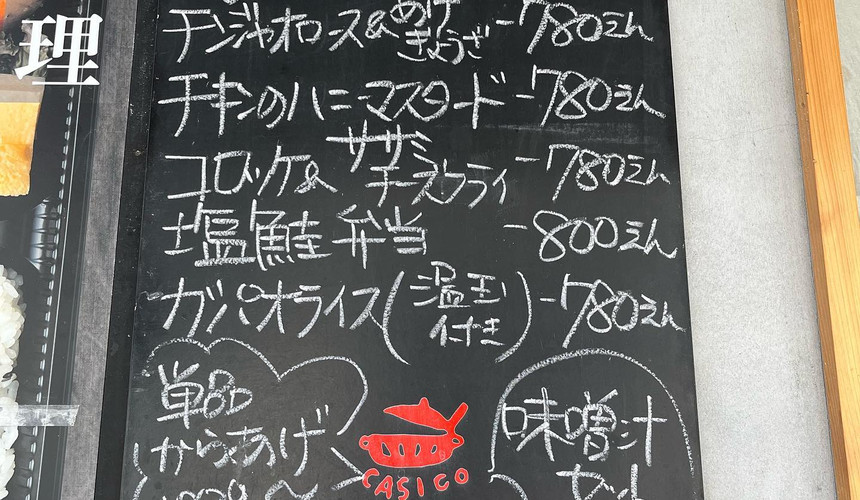 理
チンジャオロース&あげぎょうざ -780えん
チキンのハニーマスタード -780えん
コロッケ&ササミチーズフライ -780えん
塩鮭弁当 -800えん
ガパオライス(温玉付き) -780えん
単品
からあげ
100g〜
CASICO
味噌汁
セット